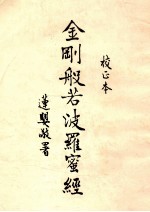 校正本
金剛般若波羅蜜經
蓮嬰敬署